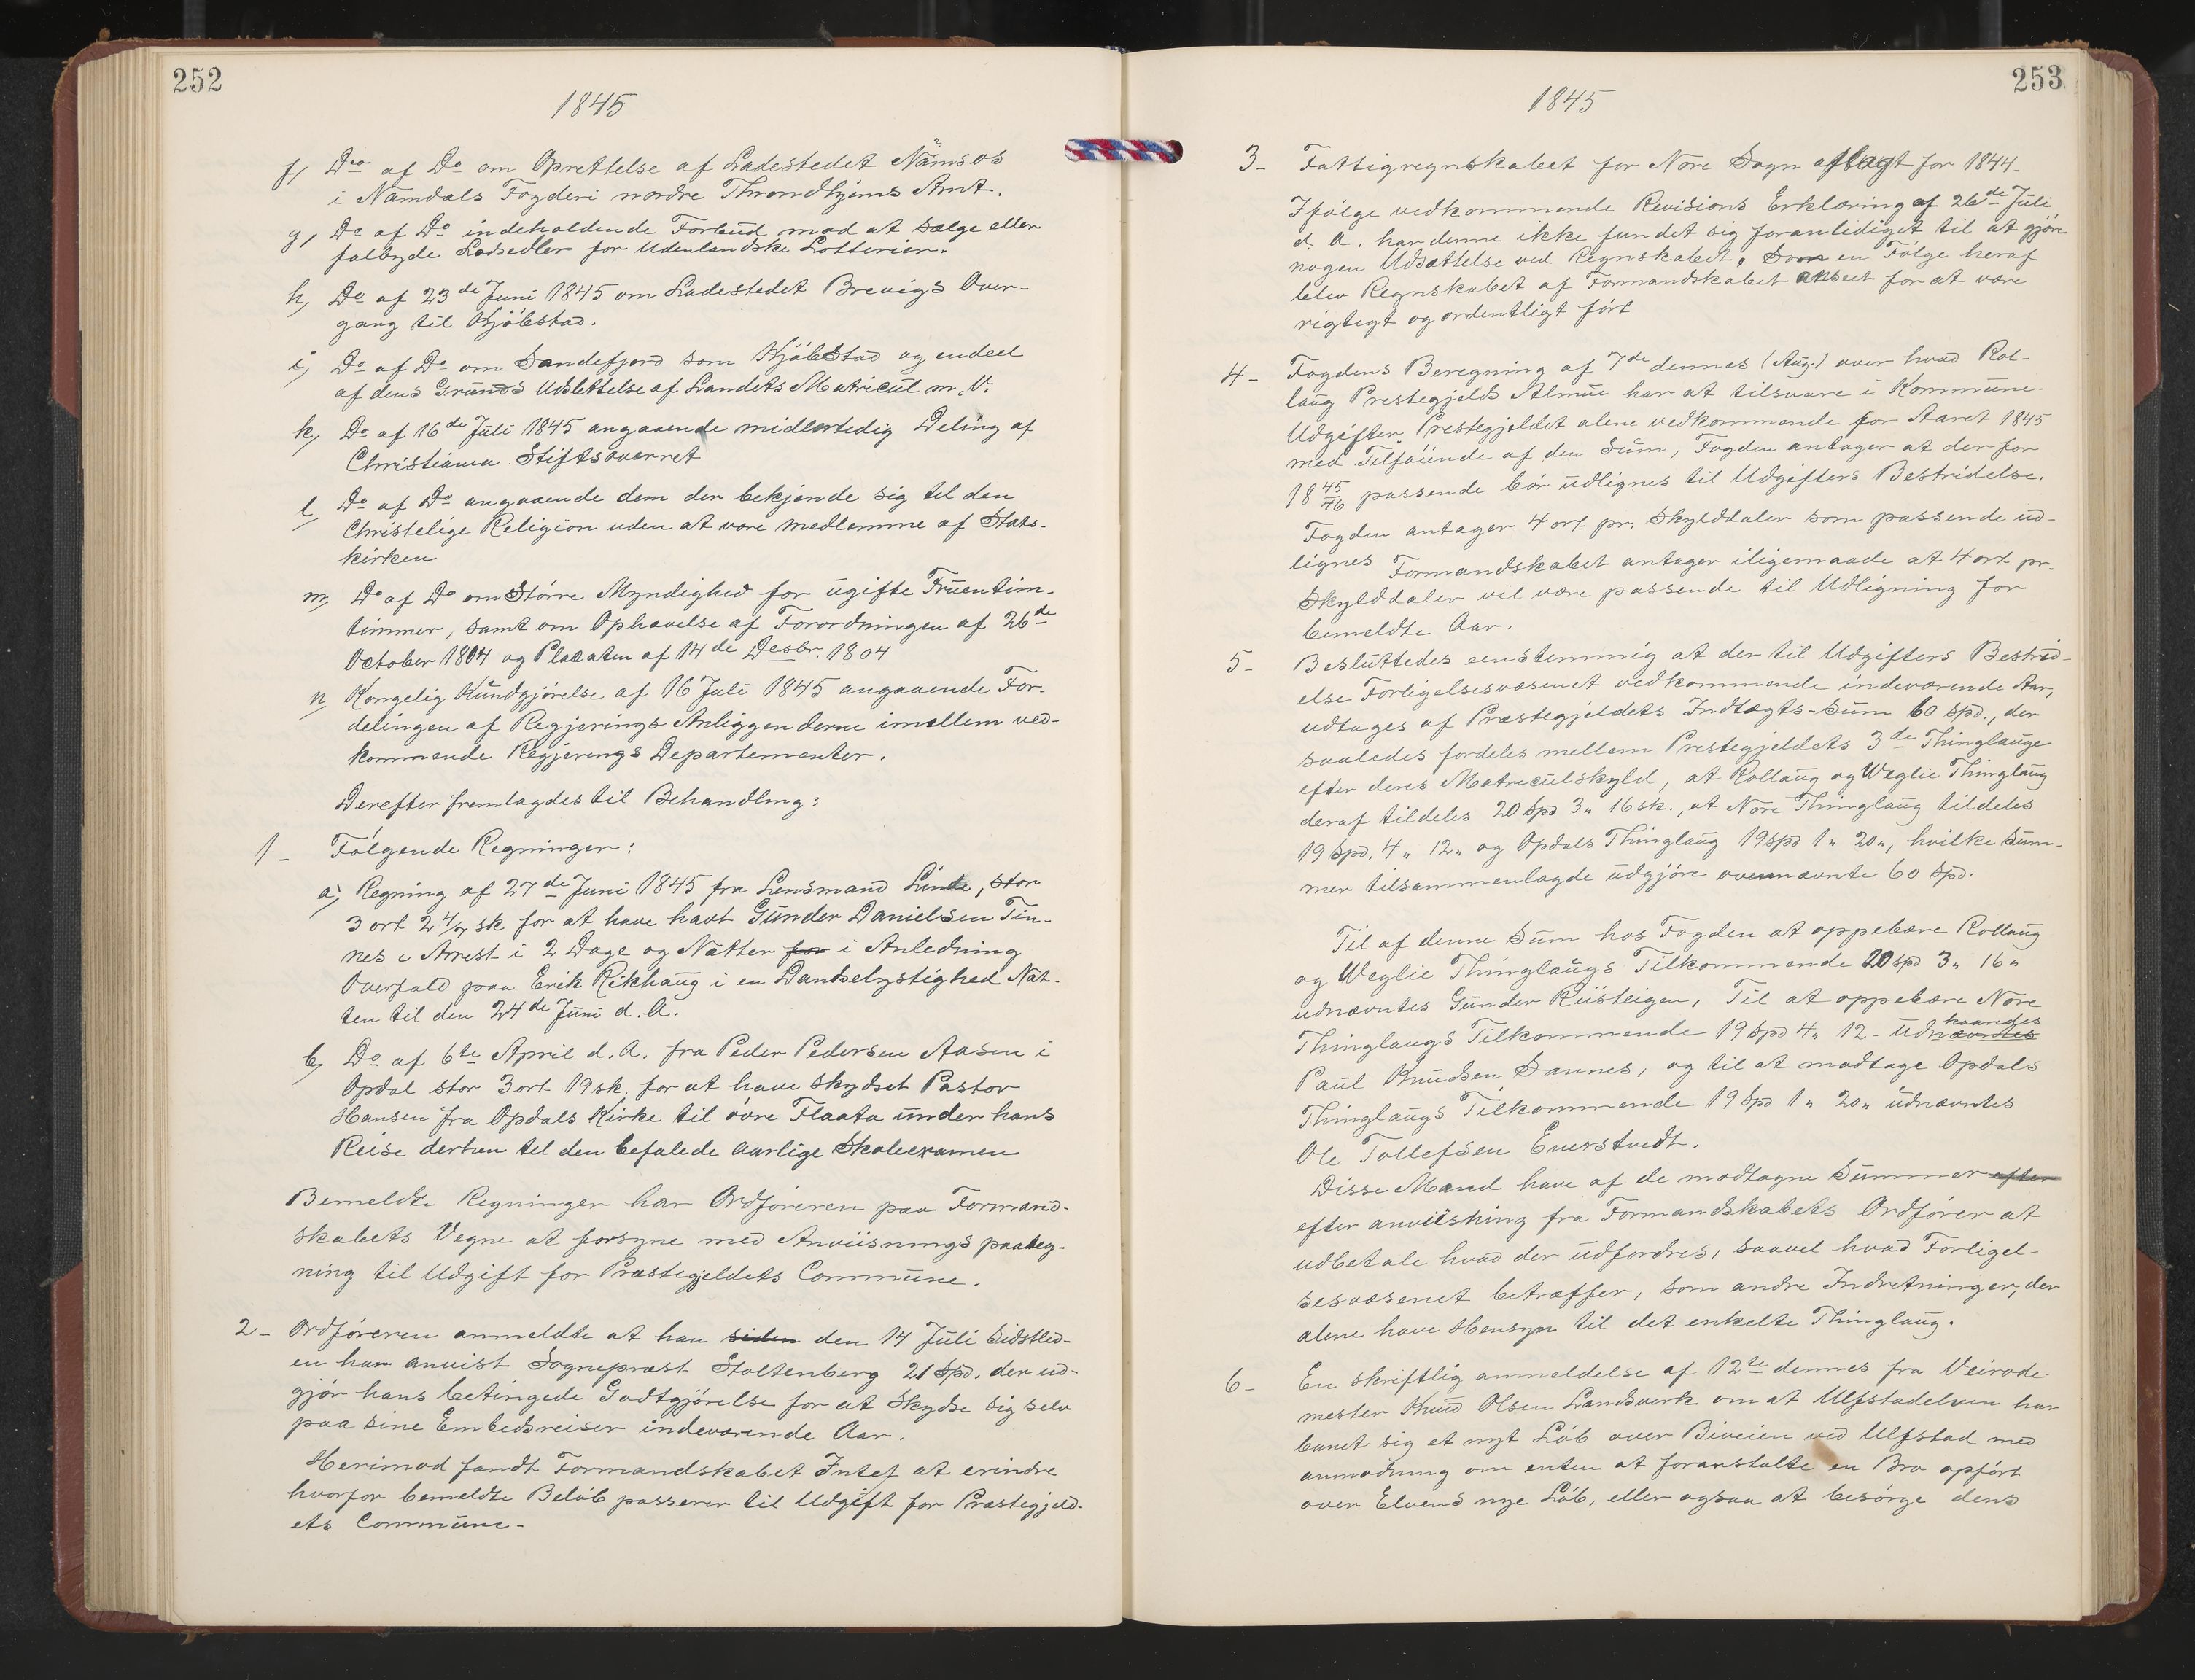 252
1845
f, Do af Do om Oprettelse af Ladestedet Namsos
i Namdals Fogderi nordre Throndhjems Amt.
g, Do af Do indeholdende Forbud mod at sælge eller
falbyde Lodsedler for Udenlandske Lotterier.
h, Do af 23de Juni 1845 om Ladestedet Brevigs Over-
gang til Kjöbstad.
i, Do af Do om Sandefjord som Kjöbstad og endeel
af dens Grunds Udslettelse af Landets Matricul m.V.
k, Do af 16de Juli 1845 angaaende midlertidig Deling af
Christiania Stiftsoverret
l, Do af Do angaaende dem der bekjende sig til den
Christelige Religion uden at være medlemme af Stats-
kirken
m, Do af Do om Större Myndighed for ugifte Fruentim-
timmer, samt om Ophævelse af Forordningen af 26de
October 1804 og Placaten af 14de Desbr. 1804
n, Kongelig Kundgjörelse af 16 Juli 1845 angaaende For-
delingen af Regjerings Anliggenderne imellem ved-
kommende Regjerings Departementer.
Derefter fremlagdes til Behandling:
1 - Fölgende Regninger:
a, Regning af 27de Juni 1845 fra Lensmand Linde, stor
3 ort 2 4/7 sk for at have havt Gunder Danielsen Tin-
nes i Arrest i 2 Dage og Nætter for i Anledning
Overfald paa Erik Rikhaug i en Dandselystighed Nat-
ten til den 24de Juni d.A.
b, Do af 6te April d.A. fra Peder Pedersen Aasen i
Opdal stor 3 ort 19 sk. for at have skydset Pastor
Hansen fra Opdals Kirke til övre Flaata under hans
Reise derhen til den befalede aarlige Skoleexamen
Bemeldte Regninger har Ordföreren paa Formand-
skabets Vegne at forsyne med Anviisnings paateg-
ning til Udgift for Præstegjeldets Commune.
2 - Ordföreren anmeldte at han siden den 14 Juli sidstled-
en har anvist Sognepræst Stoltenberg 21 Spd. der ud-
gjör hans betingede Godtgjörelse for at Skydse sig selv
paa sine Embedsreiser indeværende Aar.
Herimod fandt Formandskabet Intet at erindre
hvorfor bemeldte Belöb passerer til Udgift for Præstegjeld-
ets Commune -
253
1845
3 - Fattigregnskabet for Nore Sogn aflagt for 1844 -
Ifölge vedkommende Revisions Erklæring af 26de Juli
d. A. har denne ikke fundet sig foranlediget til at gjöre
nogen Udsættelse ved Regnskabet, Som en Fölge heraf
blev Regnskabet af Formandskabet anseet for at være
rigtigt og ordentligt fört
4 - Fogdens Beregning af 7de dennes (Aug.) over hvad Rol-
laug Prestegjelds Almue har at tilsvare i Kommune-
Udgifter Prestegjeldet alene vedkommende for Aaret 1845
med Tilföiende af den Sum, Fogden antager at der for
18 45/46 passende bör udlignes til Udgifters Bestridelse.
Fogden antager 4 ort pr. Skylddaler som passende ud-
lignes Formandskabet antager iligemaade at 4 ort pr.
Skylddaler vil være passende til Udligning for
bemeldte Aar.
5 - Besluttedes eenstemmig at der til Udgifters Bestrid-
else Forligelsesvæsenet vedkommende indeværende Aar,
udtages af Præstegjeldets Indtægts-Sum 60 Spd., der
saaledes fordeles mellem Prestegjeldets 3de Thinglauge
efter deres Matriculskyld, at Rollaug og Weglie Thinglaug
deraf tildeles 20 Spd 3" 16 sk., at Nore Thinglaug tildeles
19 Spd. 4" 12" og Opdals Thinglaug 19 Spd 1" 20", hvilke Sum-
mer tilsammenlagde udgjöre ovennævnte 60 Spd.
Til af denne Sum hos Fogden at oppebære Rollaug
og Weglie Thinglaugs Tilkommende 20 Spd 3" 16"
udnævntes Gunder Rusteigen, Til at oppebære Nore
Thinglaugs Tilkommende 19 Spd 4" 12 - udnævntes kaaredes
Paul Knudsen Sannes, og til at modtage Opdals
Thinglaugs Tilkommende 19 Spd 1" 20" udnævntes
Ole Tollefsen Enerstvedt.
Disse Mænd have af de modtagne Summer efter
efter anviisning fra Formandskabets Ordförer at
udbetale hvad der udfordres, saavel hvad Forligel-
sesvæsenet betræffer, som andre Indretninger, der
alene have Hensyn til det enkelte Thinglaug.
6 - En skriftlig anmeldelse af 12te dennes fra Veirode-
mester Knud Olsen Landsverk om at Ulfstadelven har
banet sig et nyt Löb over Biveien ved Ulfstad med
anmodning om enten at foranstalte en Bro opfört
over Elvens nye Löb, eller ogsaa at besörge dens